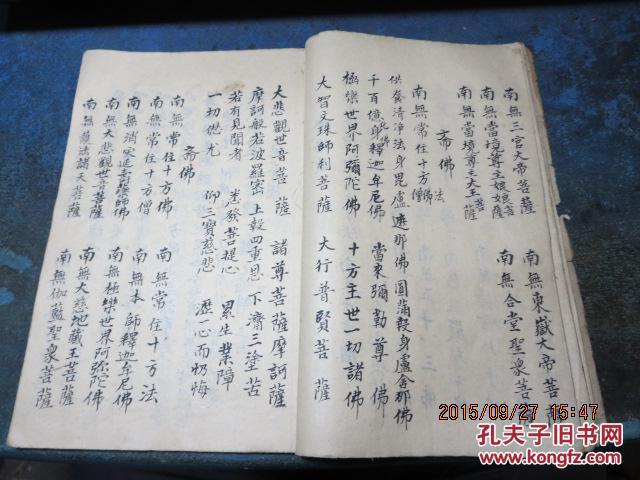 南無三官大帝菩薩　南無東嶽大帝菩薩
南無當境尊主娘娘菩薩　南無合堂聖衆菩薩
南無當境尊主大王菩薩
斋佛
南無常住十方佛法僧
供養清淨法身毘盧遮那佛　圓蒲報身盧舍那佛
千百億化身釋迦牟尼佛　當來彌勒尊佛
極樂世界阿彌陀佛　十方三世一切諸佛
大智文珠師利菩薩　大行普賢菩薩
大悲觀世音菩薩　諸尊菩薩摩訶薩
摩訶般若波羅密　上報四重恩　下濟三塗苦
若有見聞者　悉發菩提心　累生業障
一切愆尤　仰三寶慈悲　瀝一心而忏悔
斋佛
南無常住十方佛　南無常住十方法
南無常住十方僧　南無本師釋迦牟尼佛
南無消灾延壽藥師佛　南無極樂世界阿弥陀佛
南無大悲觀世音菩薩　南無大慈地藏王菩薩
南無護法諸天菩薩　南無伽藍聖衆菩薩
2015/09/27 15:47
孔夫子旧书网
www.kongfz.com